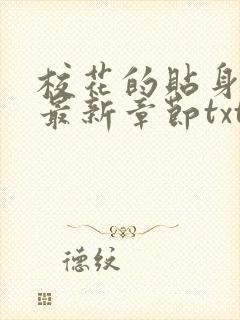 校花的貼身
最新章節txt
德纹